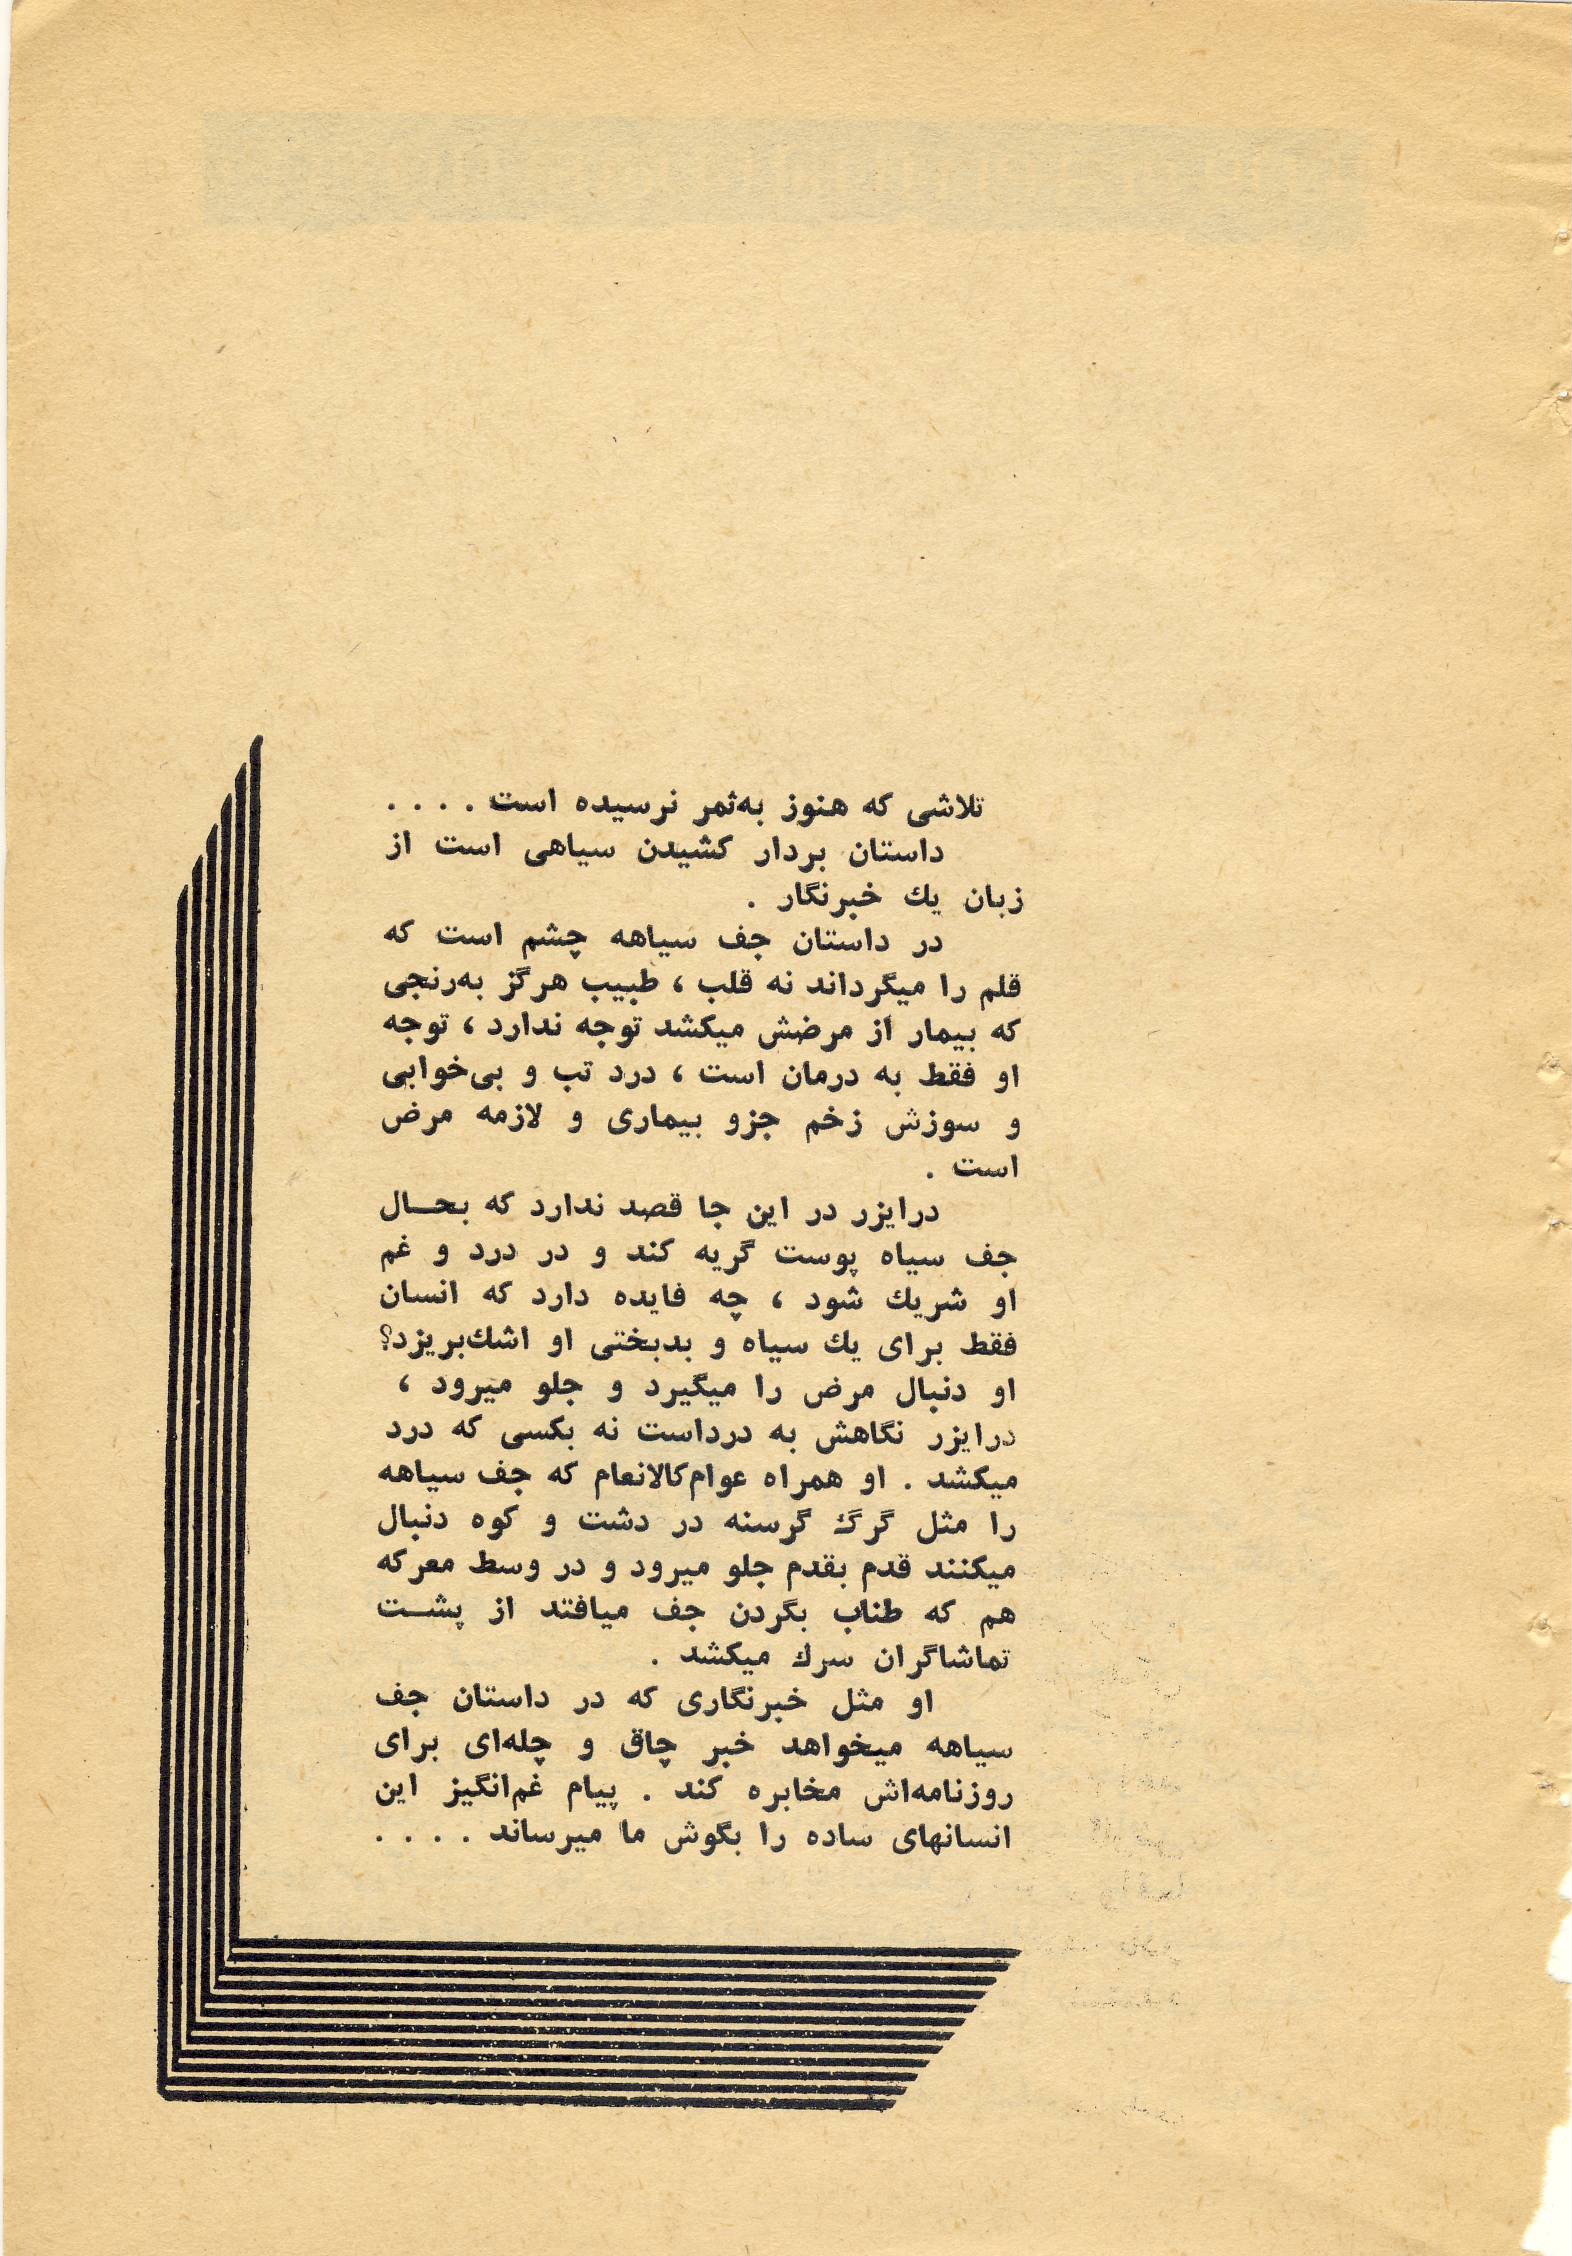 تلاشی که هنوز به‌ثمر نرسیده است . . . .
داستان بردار کشیدن سیاهی است از
زبان یك خبرنگار .
در داستان جف سیاهه چشم است که
قلم را میگرداند نه قلب ، طبیب هرگز به‌رنجی
که بیمار از مرضش میکشد توجه ندارد ، توجه
او فقط به درمان است ، درد تب و بی‌خوابی
و سوزش زخم جزو بیماری و لازمه مرض
است .
درایزر در این جا قصد ندارد که بحـــال
جف سیاه پوست گریه کند و در درد و غم
او شریك شود ، چه فایده دارد که انسان
فقط برای یك سیاه و بدبختی او اشك‌بریزد؟
او دنبال مرض را میگیرد و جلو میرود ،
درایزر نگاهش به درداست نه بکسی که درد
میکشد . او همراه عوام‌کالانعام که جف سیاهه
را مثل گرگ گرسنه در دشت و کوه دنبال
میکنند قدم بقدم جلو میرود و در وسط معرکه
هم که طناب بگردن جف میافتد از پشــت
تماشاگران سرك میکشد .
او مثل خبرنگاری که در داستان جف
سیاهه میخواهد خبر چاق و چله‌ای برای
روزنامه‌اش مخابره کند . پیام غم‌انگیز این
انسانهای ساده را بگوش ما میرساند . . . .